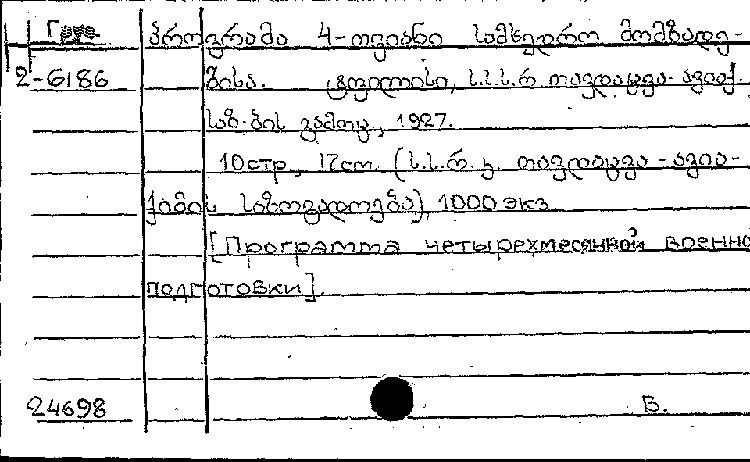 Груз. პროგრამა 4-თვიანი სამხედრო მომზადე-
2-6186 ბისა. ტფილისი, ს.ს.ს.რ. თავდაცვა-ავიაქ.
საზ-ბის გამოც., 1927.
10 стр., 17 cm. (ს.ს.რ.კ. თავდაცვა-ავია-
ქიმის საზოგადოება), 1000 экз
[Программа четырехмесячной военно
подготовки].
24698 В.